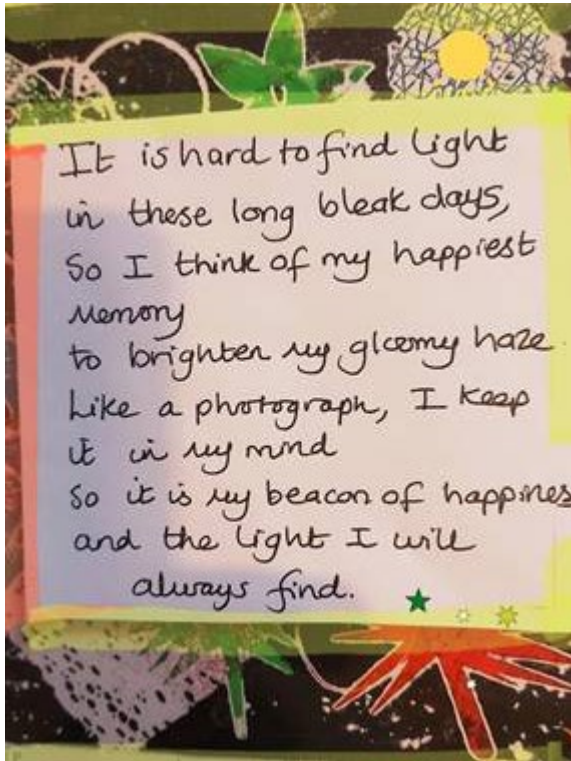 It is hard to find light
in these long bleak days,
So I think of my happiest
memory
to brighten my gloomy haze.
Like a photograph, I keep
it in my mind
So it is my beacon of happines
and the light I will
always find.